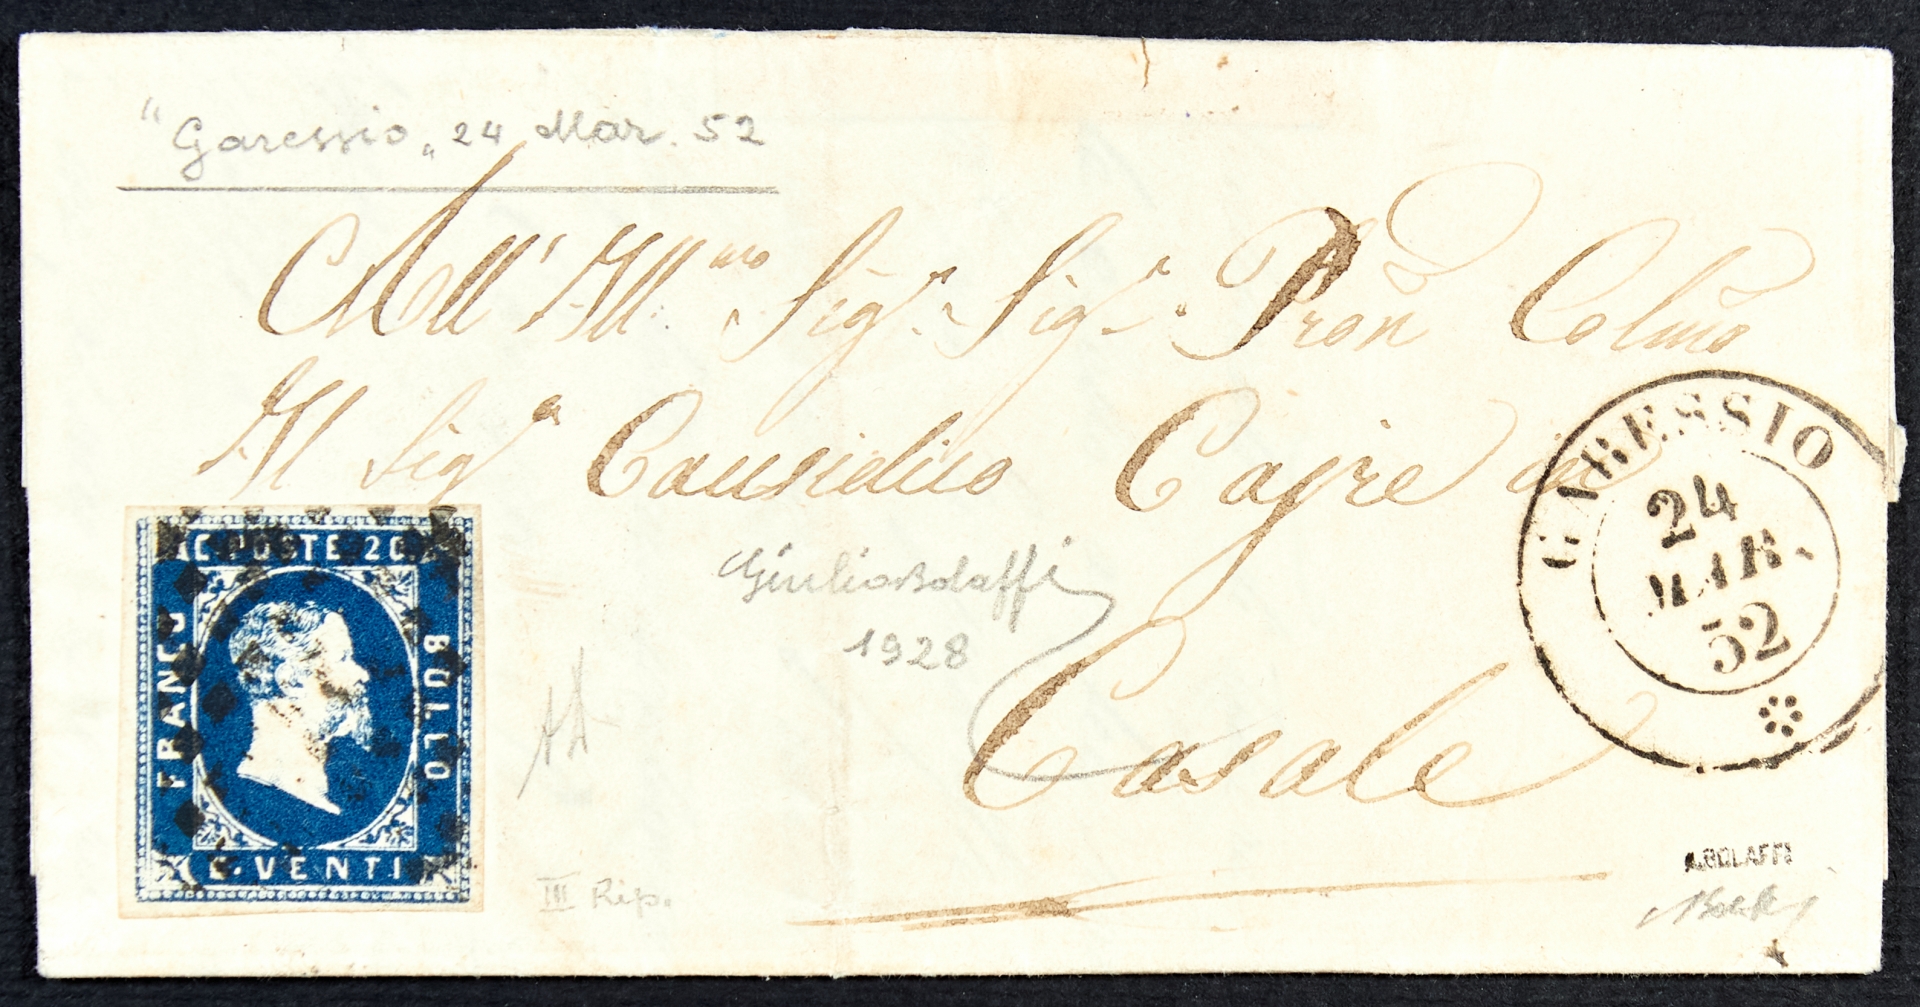 "Garessio„ 24 Mar. 52
All' Ill.mo Sig.r Sig.r Pron Colmo
Al Sig.r Causidico Cajre in
Casale
GARESSIO
24
MAR.
52
C. POSTE 20.
FRANCO
BOLLO
C. VENTI
Giulio Bolaffi
1928
III Rip.
A. BOLAFFI